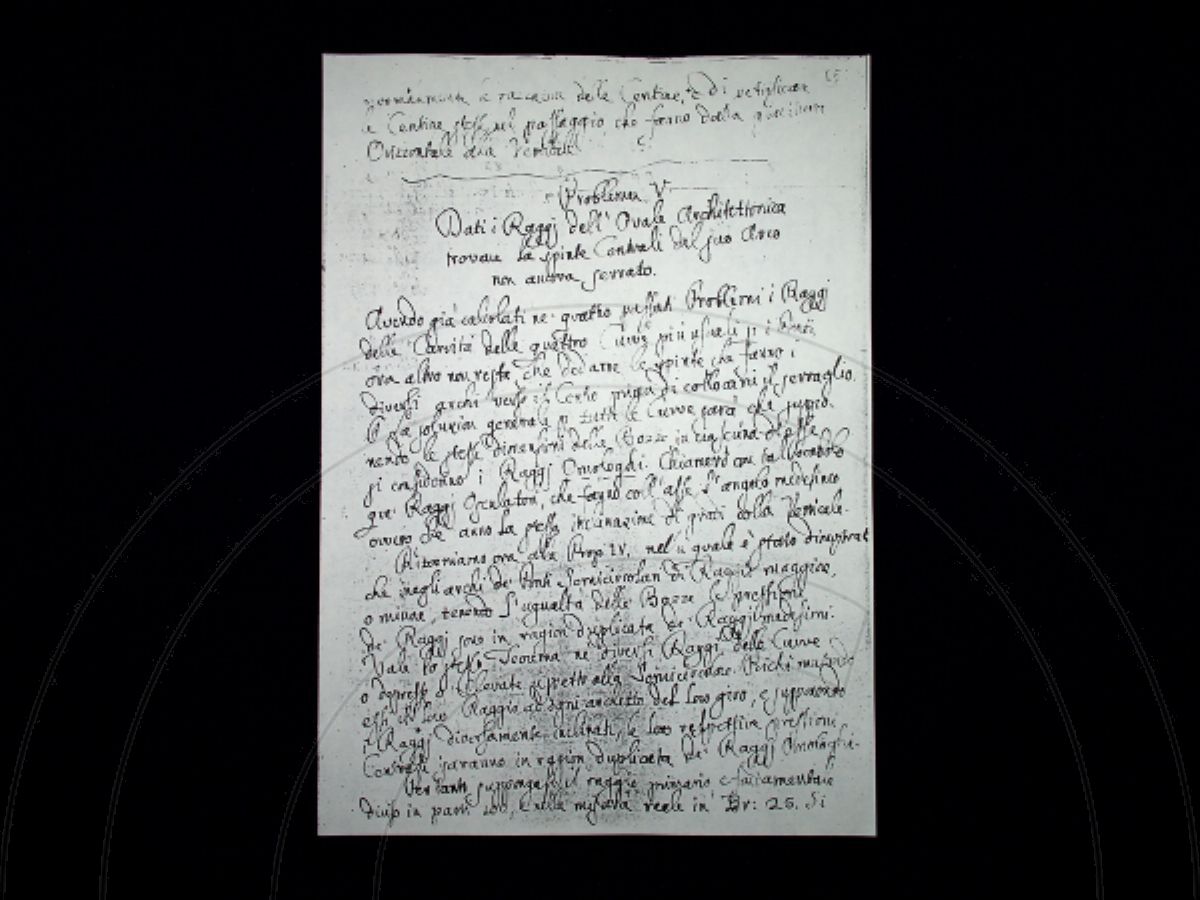 delle Centine, e di
le Centine stesse nel passaggio, che fanno dalla
Orizzontale alla Verticale
Problema V
Dati i Raggj dell' Ovale Architettonica
trovare la spinte Centrali dal suo Arco
non ancora serrato.
Avendo già calcolati ne' quattro passati Problemi i Raggj
delle Curvità delle quattro Curve più usuali
ora altro non resta, che dedurne le spinte che fanno i
diversi archi verso il Centro prima di collocarvi il serraglio.
La soluzion generale p tutte le Curve sarà che suppo-
nendo le stesse dimensioni delle Bozze in ciascuna di esse
si considerino i Raggj Omologhi. Chiamerò con tal vocabolo
que' Raggj Osculatori, che fanno coll' asse l' angolo medesimo
ovvero che anno la stessa inclinazione di gradi colla Verticale.
Ritorniamo ora alla Prop. IV. nella quale è stato dimostrato
che negli archi de' Ponti Semicircolari di Raggio maggiore,
o minore, tenendo l' ugualtà delle Bozze le pressioni
de' Raggj sono in ragion duplicata de' Raggj medesimi.
Vale lo stesso Teorema ne' diversi Raggj delle Curve
o depresse o elevate rispetto alla Semicircolare. Poichè
Raggio ad ogni archetto del loro giro, e supponendo
i Raggj diversamente inclinati, le loro respettive pressioni
Centrali saranno in ragion duplicata de' Raggj Omologhi.
Per tanto suppongasi il raggio primario e fondamentale
diviso in parti 100, e nella misura reale in Br: 25. Si